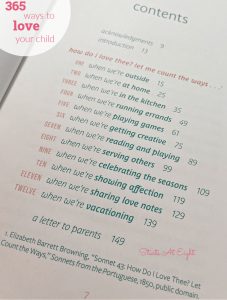 365
ways to
love
your child
contents
acknowledgments 9
introduction 13
how do I love thee? let me count the ways . . .¹
ONE when we're outside 15
TWO when we're at home 25
THREE when we're in the kitchen 35
FOUR when we're running errands 49
FIVE when we're playing games 61
SIX when we're getting creative 75
SEVEN when we're reading and playing 89
EIGHT when we're serving others 99
NINE when we're celebrating the seasons 109
TEN when we're showing affection 119
ELEVEN when we're sharing love notes 129
TWELVE when we're vacationing 139
a letter to parents 149
Starts At Eight
1. Elizabeth Barrett Browning, "Sonnet 43: How Do I Love Thee? Let
Count the Ways," Sonnets from the Portuguese, 1850, public domain.
7